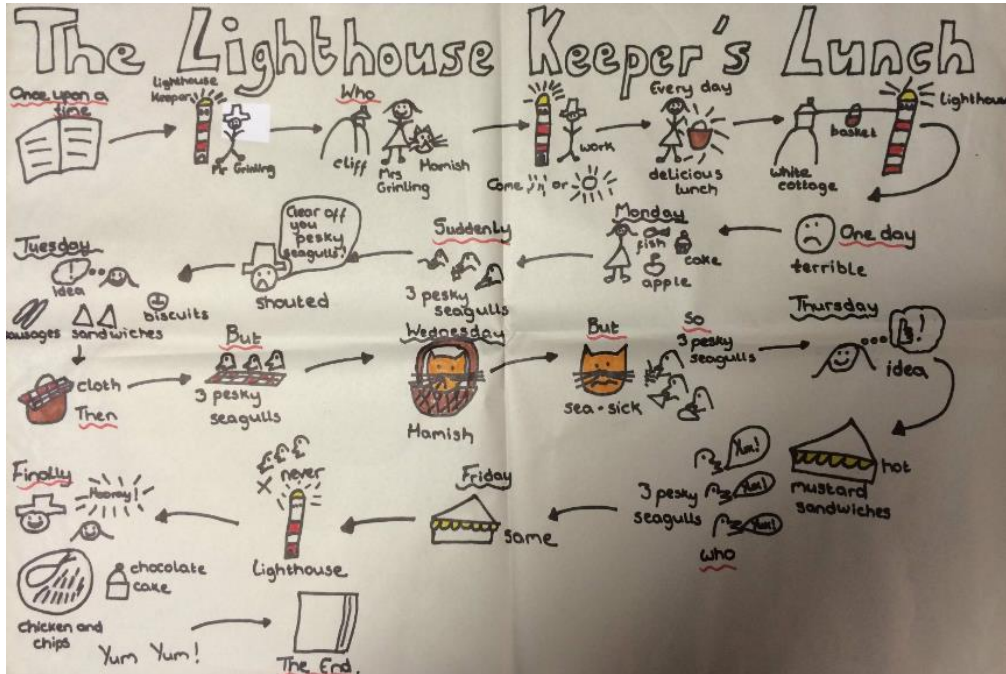 The Lighthouse Keeper's Lunch
Once upon a
time
Lighthouse
Keeper
Mr Grinling
Who
cliff
Mrs
Grinling
Mamish
work
Come
or
Every day
delicious
lunch
white
cottage
basket
Lighthouse
One day
terrible
Monday
fish
cake
apple
Suddenly
3 pesky
seagulls
Clear off
you
pesky
seagulls!
shouted
Tuesday
!
idea
biscuits
sausages sandwiches
cloth
Then
But
3 pesky
seagulls
Wednesday
Hamish
But
sea-sick
So
3 pesky
seagulls
Thursday
!
idea
hot
mustard
sandwiches
Yum!
Yum!
Yum!
3 pesky
seagulls
who
Friday
same
never
Lighthouse
Finally
Hooray!
chocolate
cake
chicken and
chips
Yum Yum!
The End.